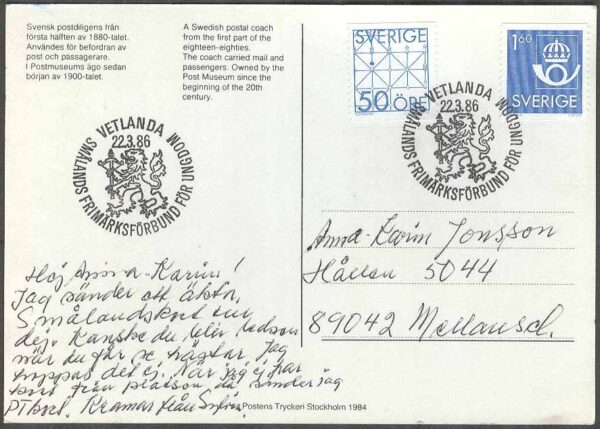 Svensk postdiligens från
första hälften av 1880-talet.
Användes för befordran av
post och passagerare.
I Postmuseums ägo sedan
början av 1900-talet.
A Swedish postal coach
from the first part of the
eighteen-eighties.
The coach carried mail and
passengers. Owned by the
Post Museum since the
beginning of the 20th
century.
SVERIGE
50 ÖRE
1.60
SVERIGE
VETLANDA
22.3.86
SMÅLANDS FRIMÄRKSFÖRBUND FÖR UNGDOM
VETLANDA
22.3.86
SMÅLANDS FRIMÄRKSFÖRBUND FÖR UNGDOM
Anna-Karin Jonsson
Hållen 5044
89042 Mellansel.
Hej Anna-Karin!
Jag sänder ett äkta
Smålandskort till
dej. Kanske du blir ledsen
när du får se hästar. Jag
hoppas det ej. När jag ej har
kort från platsen då sänder jag
PTkort. Kramar från
Postens Tryckeri Stockholm 1984